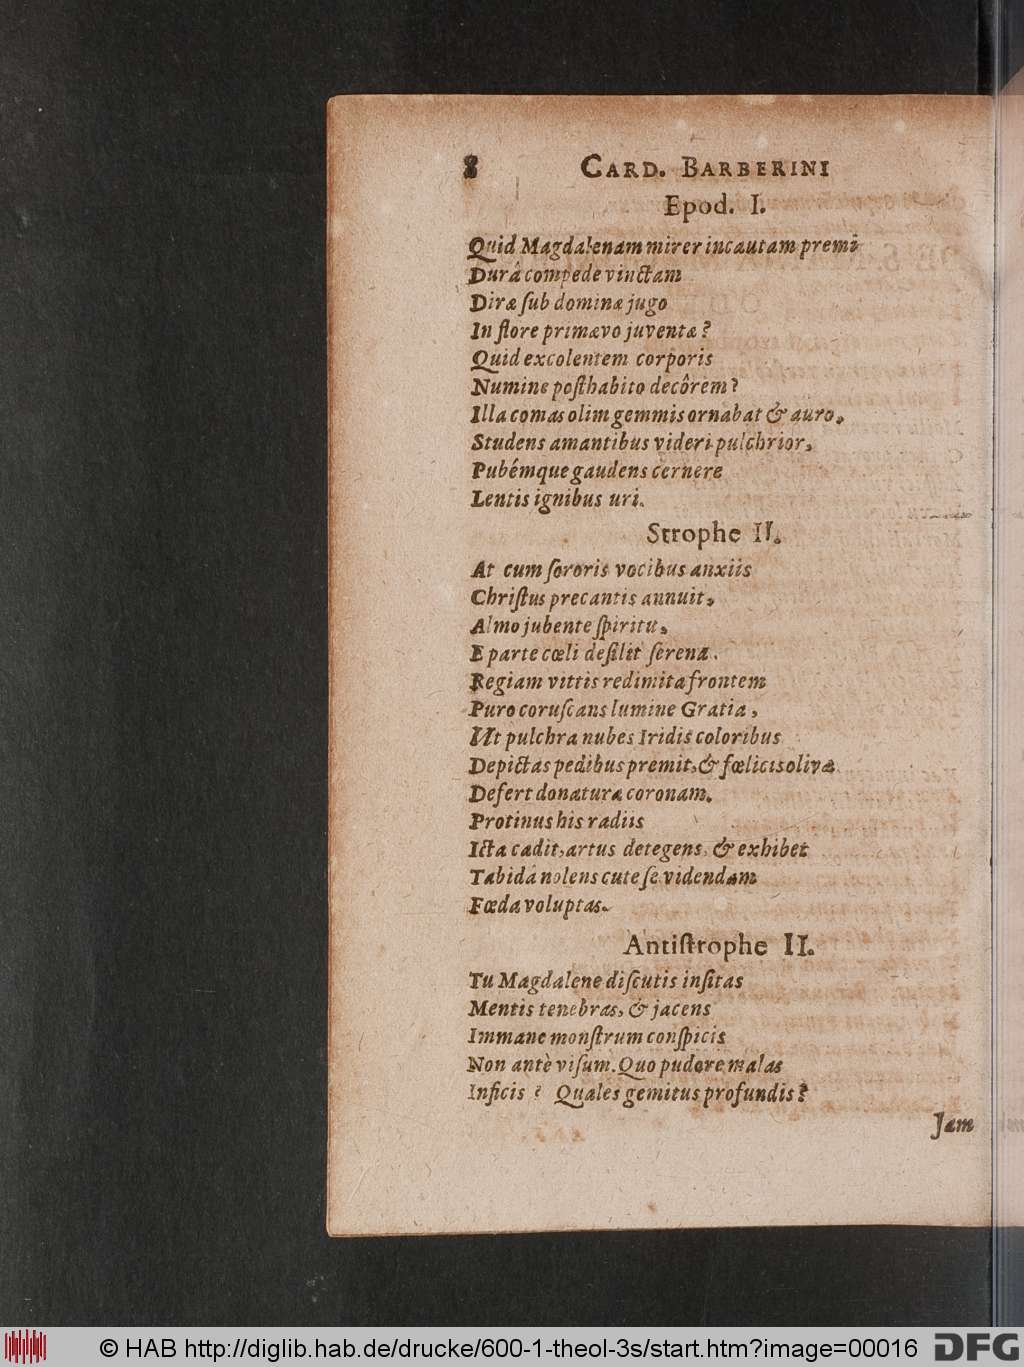 8 CARD. BARBERINI
Epod. I.
Quid Magdalenam mirer incautam premi
Durâ compede vinctam
Diræ ſub dominæ jugo
In flore primævo juventæ?
Quid excolentem corporis
Numine poſthabito decôrem?
Illa comas olim gemmis ornabat & auro,
Studens amantibus videri pulchrior,
Pubémque gaudens cernere
Lentis ignibus uri.
Strophe II.
At cum ſororis vocibus anxiis
Chriſtus precantis annuit,
Almo jubente ſpiritu,
E parte cœli deſilit ſerena.
Regiam vittis redimita frontem
Puro coruſcans lumine Gratia,
Ut pulchra nubes Iridis coloribus
Depictas pedibus premit, & fœlicis olivæ
Defert donatura coronam.
Protinus his radiis
Icta cadit, artus detegens, & exhibet
Tabidâ nolens cute ſe videndam
Fœda voluptas.
Antiſtrophe II.
Tu Magdalene diſcutis inſitas
Mentis tenebras, & jacens
Immane monſtrum conſpicis
Non antè viſum. Quo pudore malas
Inficis? Quales gemitus profundis?
Jam
© HAB http://diglib.hab.de/drucke/600-1-theol-3s/start.htm?image=00016
DFG